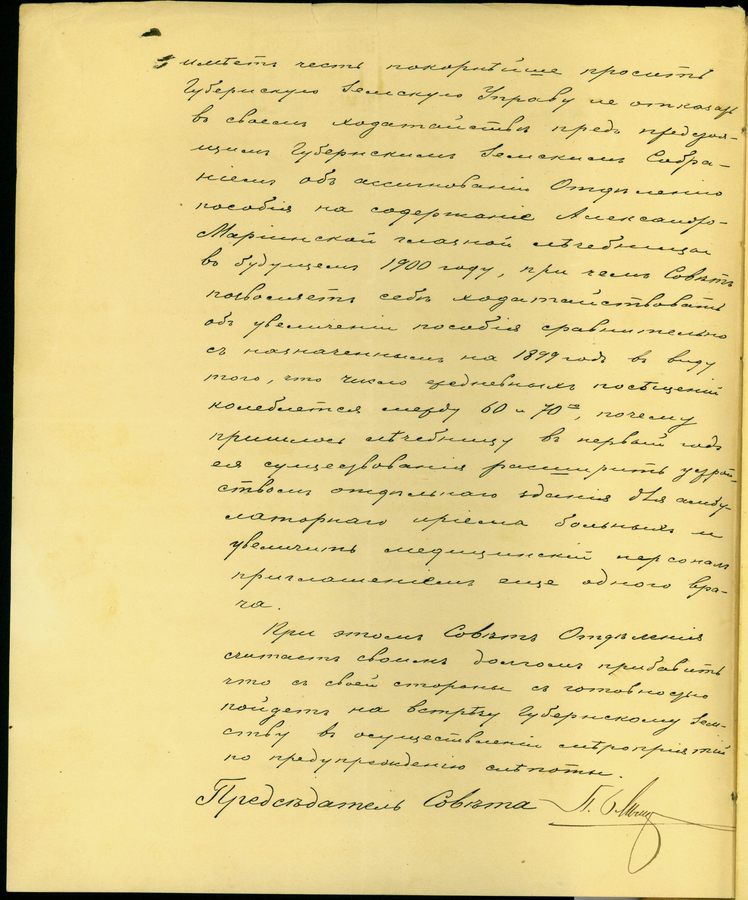 имѣетъ честь покорнѣйше просить
Губернскую Земскую Управу не отказать
въ своемъ ходатайствѣ предъ предстоя-
щимъ Губернскимъ Земскимъ Собра-
ніемъ объ ассигнованіи Отдѣленію
пособія на содержаніе Александро-
Маріинской глазной лѣчебницы
въ будущемъ 1900 году, при чемъ Совѣтъ
позволяетъ себѣ ходатайствовать
объ увеличеніи пособія сравнительно
съ назначеннымъ на 1899 годъ въ виду
того, что число ежедневныхъ посѣщеній
колеблется между 60 и 70ю, почему
пришлось лѣчебницу въ первый годъ
ея существованія расширить устрой-
ствомъ отдѣльнаго зданія для амбу-
латорнаго пріема больныхъ и
увеличить медицинскій персоналъ
приглашеніемъ еще одного вра-
ча.
При этомъ Совѣтъ Отдѣленія
считаетъ своимъ долгомъ прибавить
что съ своей стороны съ готовностью
пойдетъ на встрѣчу Губернскому Зем-
ству въ осуществленіи мѣропріятій
по предупрежденію слѣпоты.
Предсѣдатель Совѣта П.